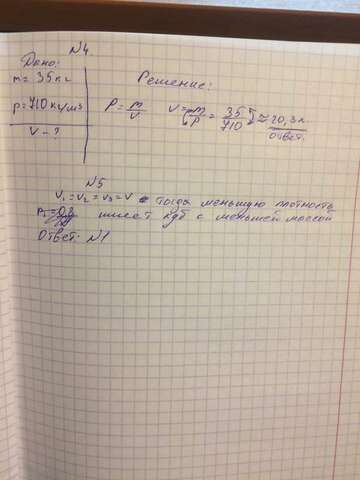 N4
Дано:
m = 35 кг
ρ = 710 кг/м3
V - ?
Решение:
ρ = m/V V = m/ρ = 35/710 ≈ 20,3 л.
ответ.
N5
V1 = V2 = V3 = V тогда меньшую плотность
имеет куб с меньшей массой
Ответ: N1